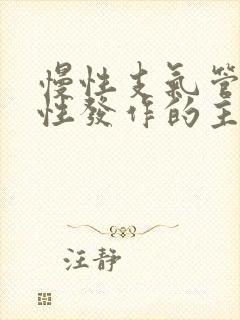 慢性支氣管
性發作的主
汪静